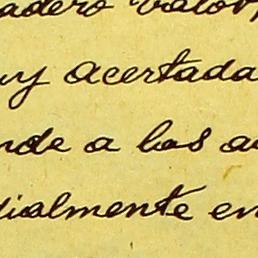 adero valor,
uy acertada
nde a los a
dialmente en